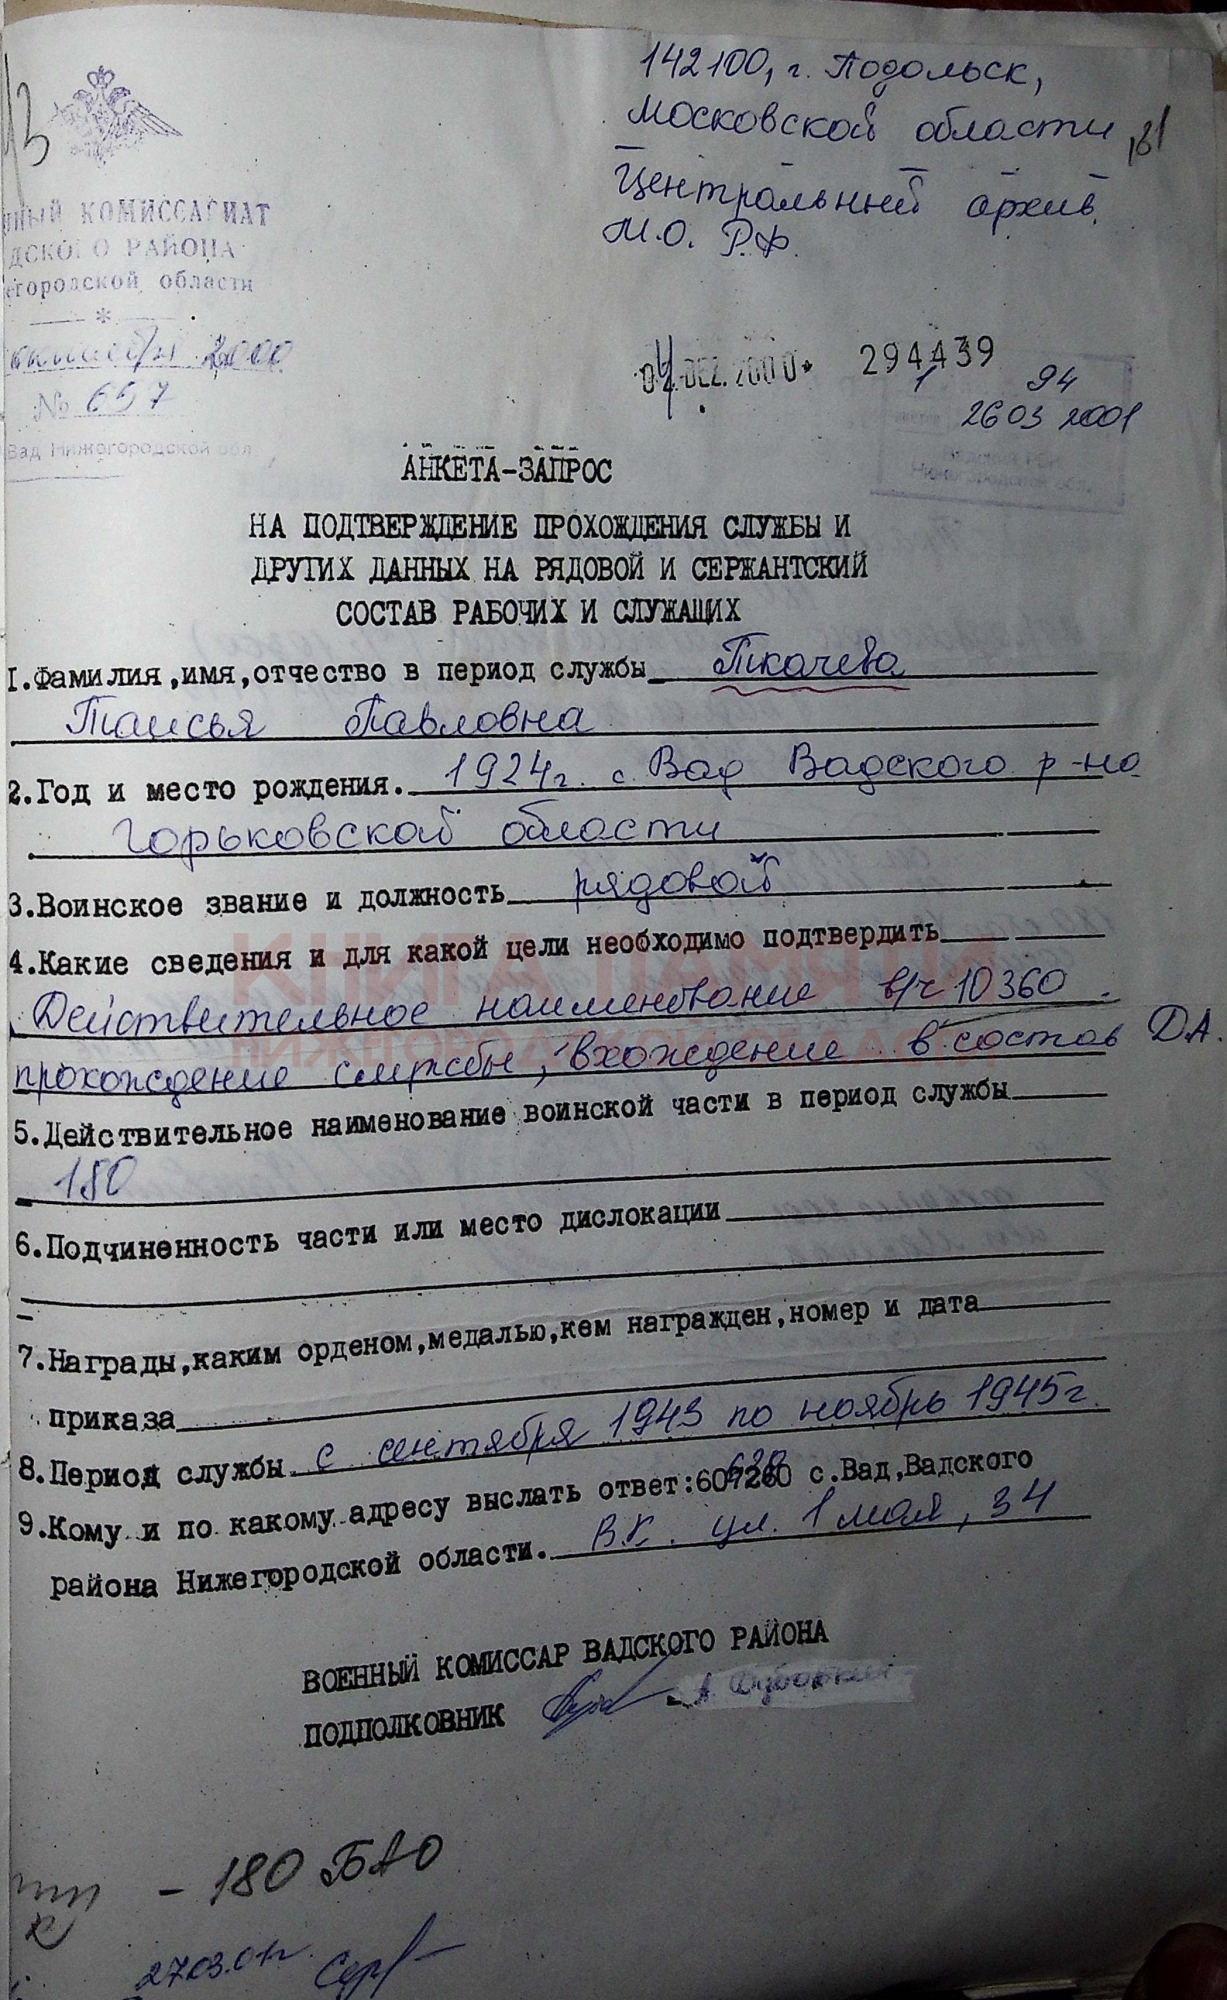 142100, г. Подольск,
Московской области
Центральный архив
М.О. Р.Ф.
181
КОМИССАРИАТ
РАЙОНА
области
2000
№ 657
Вад Нижегородской обл
DEZ. 2000 294439
1 94
26 03 2001
АНКЕТА-ЗАПРОС
НА ПОДТВЕРЖДЕНИЕ ПРОХОЖДЕНИЯ СЛУЖБЫ И
ДРУГИХ ДАННЫХ НА РЯДОВОЙ И СЕРЖАНТСКИЙ
СОСТАВ РАБОЧИХ И СЛУЖАЩИХ
1.Фамилия,имя,отчество в период службы Ткачева
Таисья Павловна
2.Год и место рождения. 1924г. с. Вад Вадского р-на
Горьковской области
3.Воинское звание и должность рядовой
4.Какие сведения и для какой цели необходимо подтвердить
Действительное наименование в/ч 10360.
прохождение службы, вхождение в состав Д.А.
КНИГА ПАМЯТИ
НИЖЕГОРОДСКОЙ ОБЛАСТИ
5.Действительное наименование воинской части в период службы
180
6.Подчиненность части или место дислокации
7.Награды,каким орденом,медалью,кем награжден,номер и дата
приказа
8.Период службы с сентября 1943 по ноябрь 1945г.
9.Кому и по какому адресу выслать ответ:607260 с.Вад,Вадского
района Нижегородской области. В.К. ул. 1 мая, 34
ВОЕННЫЙ КОМИССАР ВАДСКОГО РАЙОНА
ПОДПОЛКОВНИК
- 180 БАО
27.03.01г.